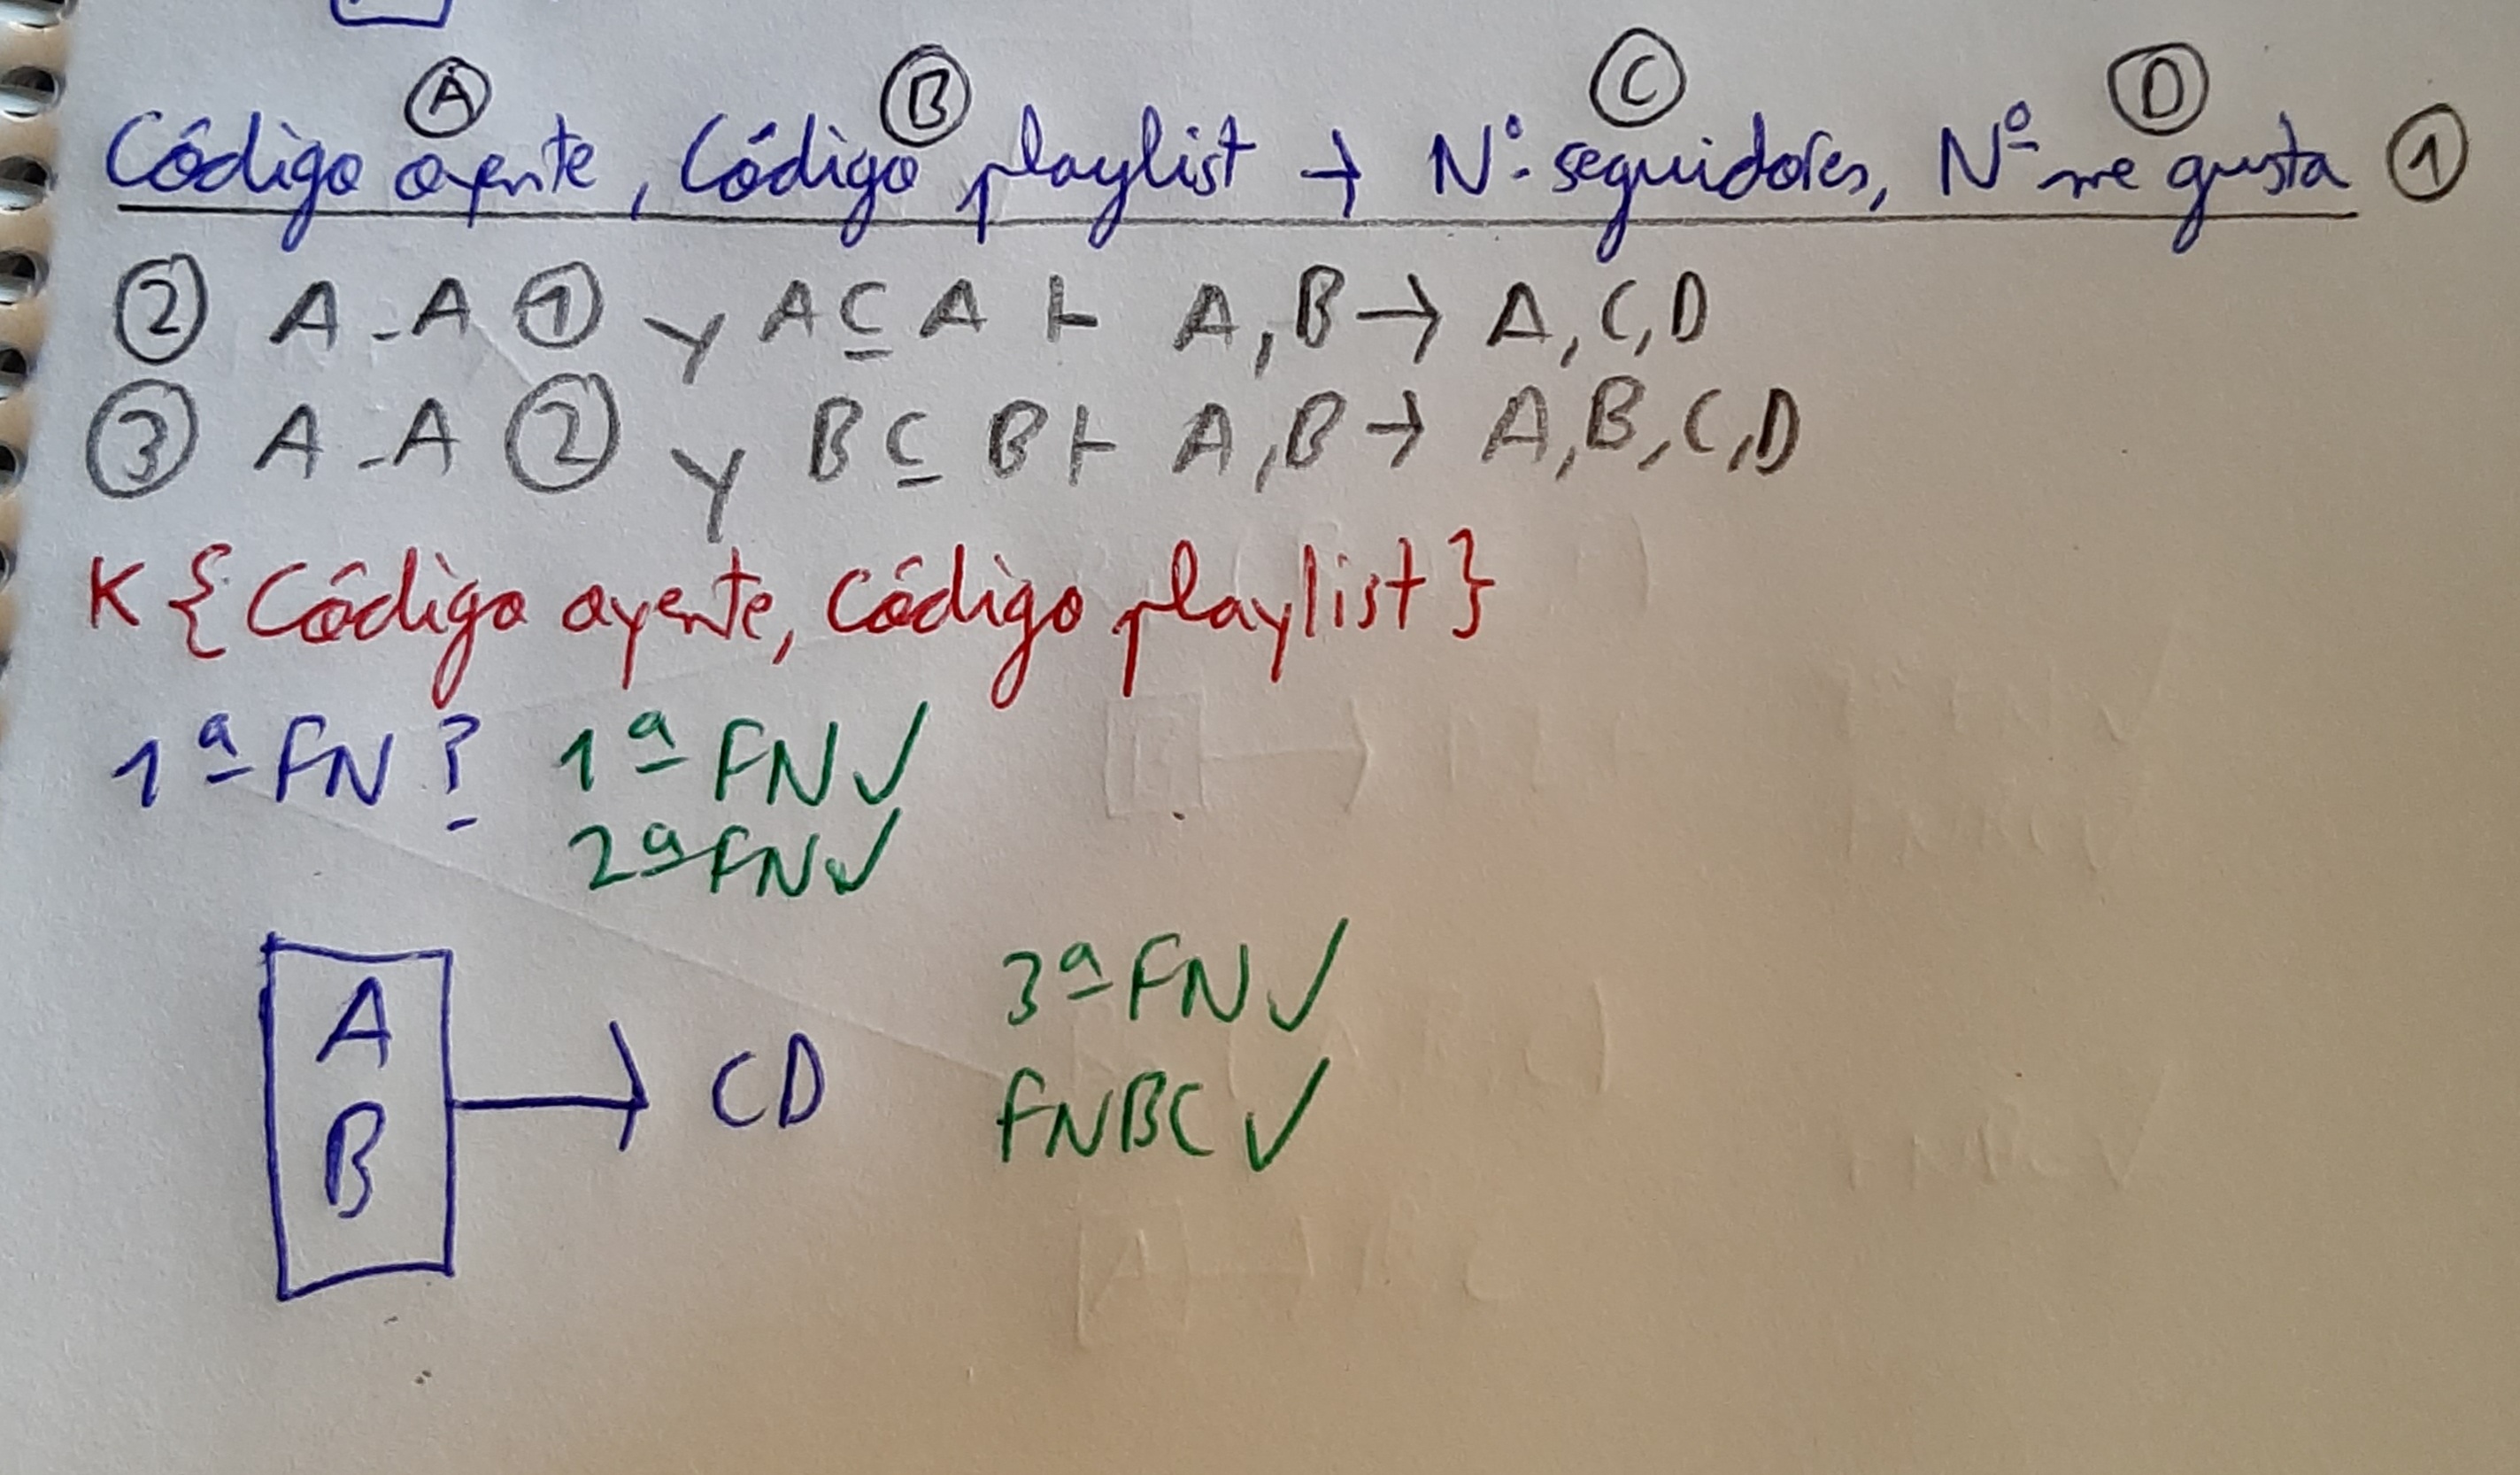 Ⓐ Ⓑ Ⓒ Ⓓ
Código oyente, Código playlist → Nº seguidores, Nº me gusta ①
② A-A ① y A ⊆ A ⊢ A,B → A,C,D
③ A-A ② y B ⊆ B ⊢ A,B → A,B,C,D
K {Código oyente, Código playlist}
1ª FN? 1ª FN✓
2ª FN✓
A
B → CD
3ª FN✓
FNBC✓